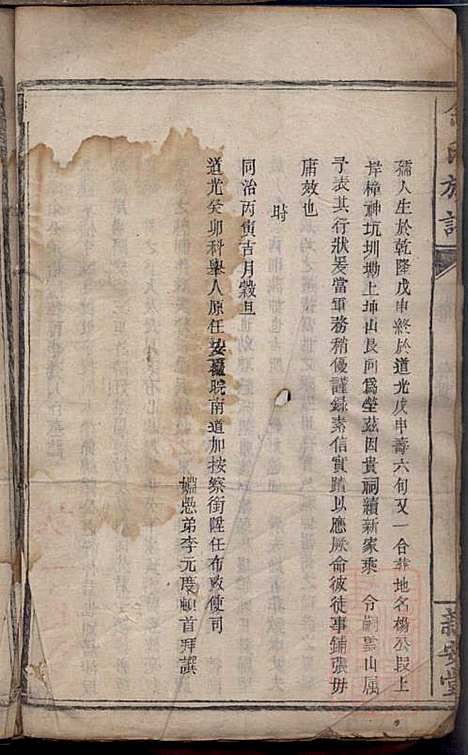 孺人生於乾隆戊申終於道光戊申壽六旬又一合葬地名楊公段上
岸樟神坑圳坳上坤山艮向爲塋茲因貴祠續新家乘　令嗣雲山屬
予表其行狀爰當軍務稍優謹錄素信實踏以應厥命彼徒事鋪張毋
庸效也
時
同治丙寅吉月穀旦
道光癸卯科舉人原任安徽皖南道加按察銜陞任布政使司
姻愚弟李元度頓首拜譔
氏族譜
新安堂